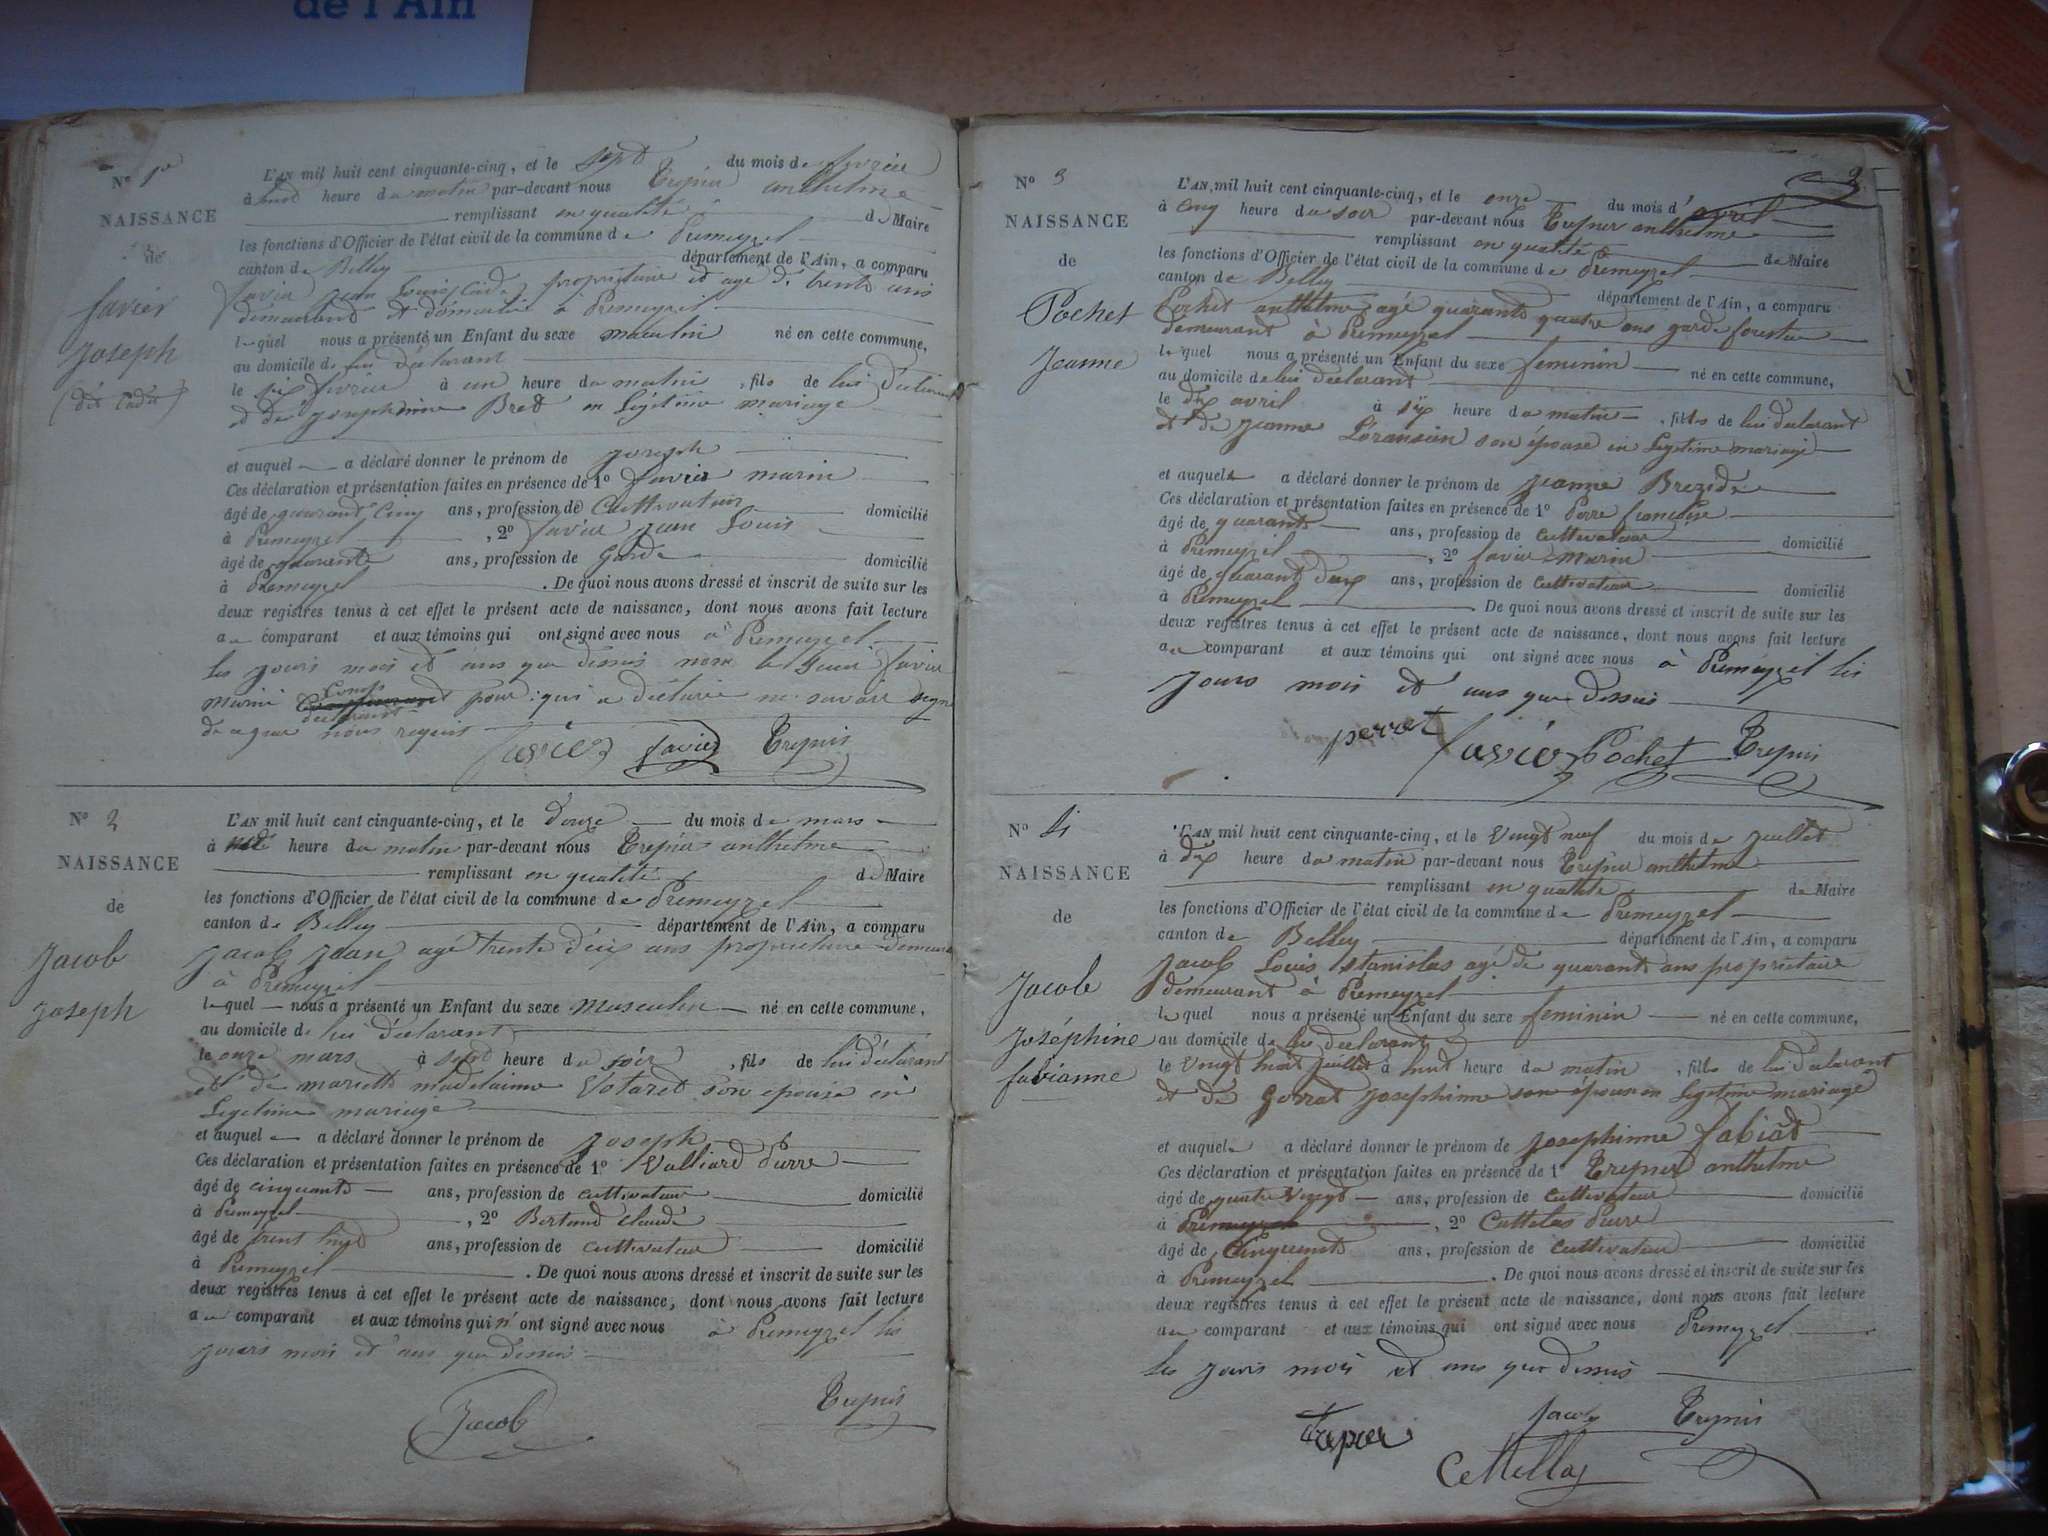 de l'Ain
N° 1er
L'AN mil huit cent cinquante-cinq, et le sept du mois de fevrier
à huit heure du matin par-devant nous Trepier anthelme
NAISSANCE
remplissant en qualité de Maire
de
les fonctions d'Officier de l'état civil de la commune de Premeyzel
canton de Belley département de l'Ain, a comparu
favier
favier jean Louis, propriétaire et agé de trente ans
demeurant et domicilié à Premeyzel
Joseph
lequel nous a présenté un Enfant du sexe masculin né en cette commune,
au domicile de lui déclarant
(dit Cadet)
le six fevrier à un heure du matin, fils de lui déclarant
et de josephinne Bred en Légitime mariage
et auquel a déclaré donner le prénom de joseph
Ces déclaration et présentation faites en présence de 1° favier marin
âgé de quarante Cinq ans, profession de Cultivateur domicilié
à Premeyzel, 2° favier jean Louis
âgé de quarante ans, profession de Garde domicilié
à Premeyzel. De quoi nous avons dressé et inscrit de suite sur les
deux registres tenus à cet effet le présent acte de naissance, dont nous avons fait lecture
au comparant et aux témoins qui ont signé avec nous à Premeyzel
les jours mois et ans que dessus le Sieur favier
marin pour qui a déclaré ne savoir signé
declarant
de ce que nous
favier favier Trepier
N° 2
L'AN mil huit cent cinquante-cinq, et le douze du mois de mars
à heure du matin par-devant nous Trepier anthelme
NAISSANCE
remplissant en qualité de Maire
de
les fonctions d'Officier de l'état civil de la commune de Premeyzel
canton de Belley département de l'Ain, a comparu
Jacob
jacob jean agé trente dix ans proprietaire demeurant
à Premeyzel
joseph
lequel nous a présenté un Enfant du sexe masculin né en cette commune,
au domicile de lui déclarant
le onze mars à sept heure du soir, fils de lui déclarant
et de mariette madelaine son epouse en
Legitime mariage
et auquel a déclaré donner le prénom de joseph
Ces déclaration et présentation faites en présence de 1° Valliard Pierre
âgé de cinquante ans, profession de cultivateur domicilié
à Premeyzel, 2° Bertrand Claude
âgé de ans, profession de cultivateur domicilié
à Premeyzel. De quoi nous avons dressé et inscrit de suite sur les
deux registres tenus à cet effet le présent acte de naissance, dont nous avons fait lecture
au comparant et aux témoins qui n'ont signé avec nous à Premeyzel les
jours mois et ans que dessus
Jacob Trepier
N° 3
L'AN mil huit cent cinquante-cinq, et le onze du mois d'avril
à cinq heure du soir par-devant nous Trepier anthelme
NAISSANCE
remplissant en qualité de Maire
de
les fonctions d'Officier de l'état civil de la commune de Premeyzel
canton de Belley département de l'Ain, a comparu
Pochet
Pochet anthelme agé quarante quatre ans garde forestier
demeurant à Premeyzel
Jeanne
lequel nous a présenté un Enfant du sexe feminin né en cette commune,
au domicile de lui declarant
le dix avril à six heure du matin, filles de lui declarant
et de jeanne son épouse en Legitime mariage
et auquel a déclaré donner le prénom de jeanne
Ces déclaration et présentation faites en présence de 1°
âgé de quarante ans, profession de cultivateur domicilié
à Premeyzel, 2° favier marin
âgé de quarant deux ans, profession de cultivateur domicilié
à Premeyzel. De quoi nous avons dressé et inscrit de suite sur les
deux registres tenus à cet effet le présent acte de naissance, dont nous avons fait lecture
au comparant et aux témoins qui ont signé avec nous à Premeyzel les
jours mois et ans que dessus
perret favier Pochet Trepier
N° 4
L'AN mil huit cent cinquante-cinq, et le vingt neuf du mois de juillet
à dix heure du matin par-devant nous Trepier anthelme
NAISSANCE
remplissant en qualité de Maire
de
les fonctions d'Officier de l'état civil de la commune de Premeyzel
canton de Belley département de l'Ain, a comparu
Jacob
jacob Louis stanislas agé de quarante ans proprietaire
demeurant à Premeyzel
lequel nous a présenté un Enfant du sexe feminin né en cette commune,
Joséphine
au domicile de lui declarant
fabianne
le vingt huit juillet à huit heure du matin, filles de lui declarant
et de josephinne son épouse en Legitime mariage
et auquel a déclaré donner le prénom de josephinne
Ces déclaration et présentation faites en présence de 1° Trepier anthelme
âgé de quatre vingt ans, profession de cultivateur domicilié
à Premeyzel, 2° Cattelas Pierre
âgé de Cinquante ans, profession de cultivateur domicilié
à Premeyzel. De quoi nous avons dressé et inscrit de suite sur les
deux registres tenus à cet effet le présent acte de naissance, dont nous avons fait lecture
au comparant et aux témoins qui ont signé avec nous Premeyzel
les jours mois et ans que dessus
Trepier Jacob Trepier